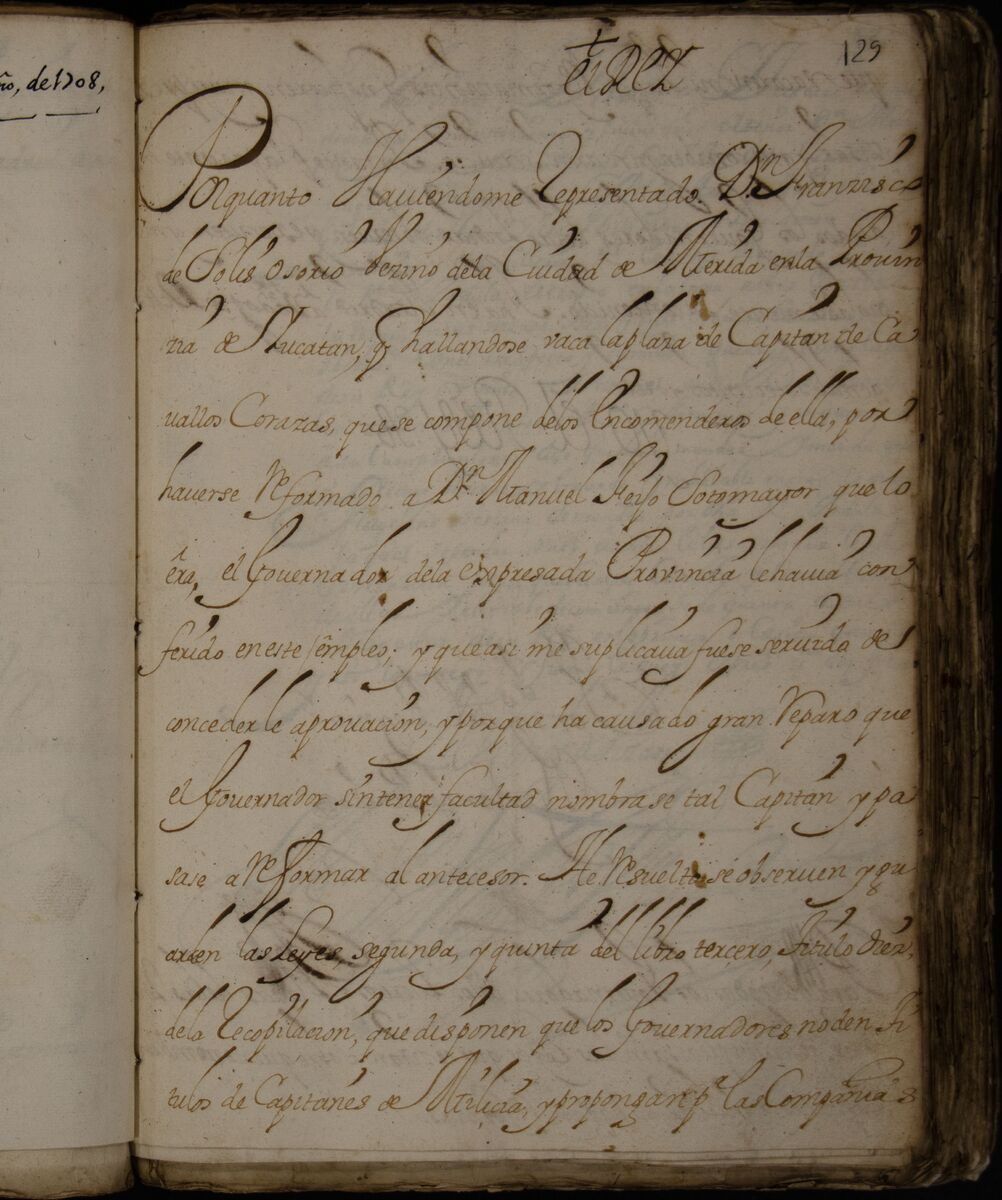 ño, de 1708,
129
El REY
Porquanto Hauiendome Representado Dn. Franzisco
de Solis Osorio Vezino dela Ciudad de Merida enla Prouin
zia de Yucatan, q hallandose vaca laplaza de Capitan de Ca
uallos Corazas, quese compone delos Encomenderos de ella, por
hauerse Reformado a Dn. Manuel Feijo Sotomayor que lo
éra, el Gouernador dela expresada Provincia lehauia con
ferido eneste empleo; y que asi me suplicaua fuese seruido de
concederle aprouacion, y porque ha causado gran Reparo que
el Gouernador sintener facultad nombrase tal Capitan y pa
sase a Reformar al antecesor. He Resuelto se obseruen y gu
arden las Leyes, segunda, y quinta del libro tercero, titulo diez,
dela Recopilacion, que disponen que los Gouernadores no den ti
tulos de Capitanes de Milicia, y propongan pa. las Compañias